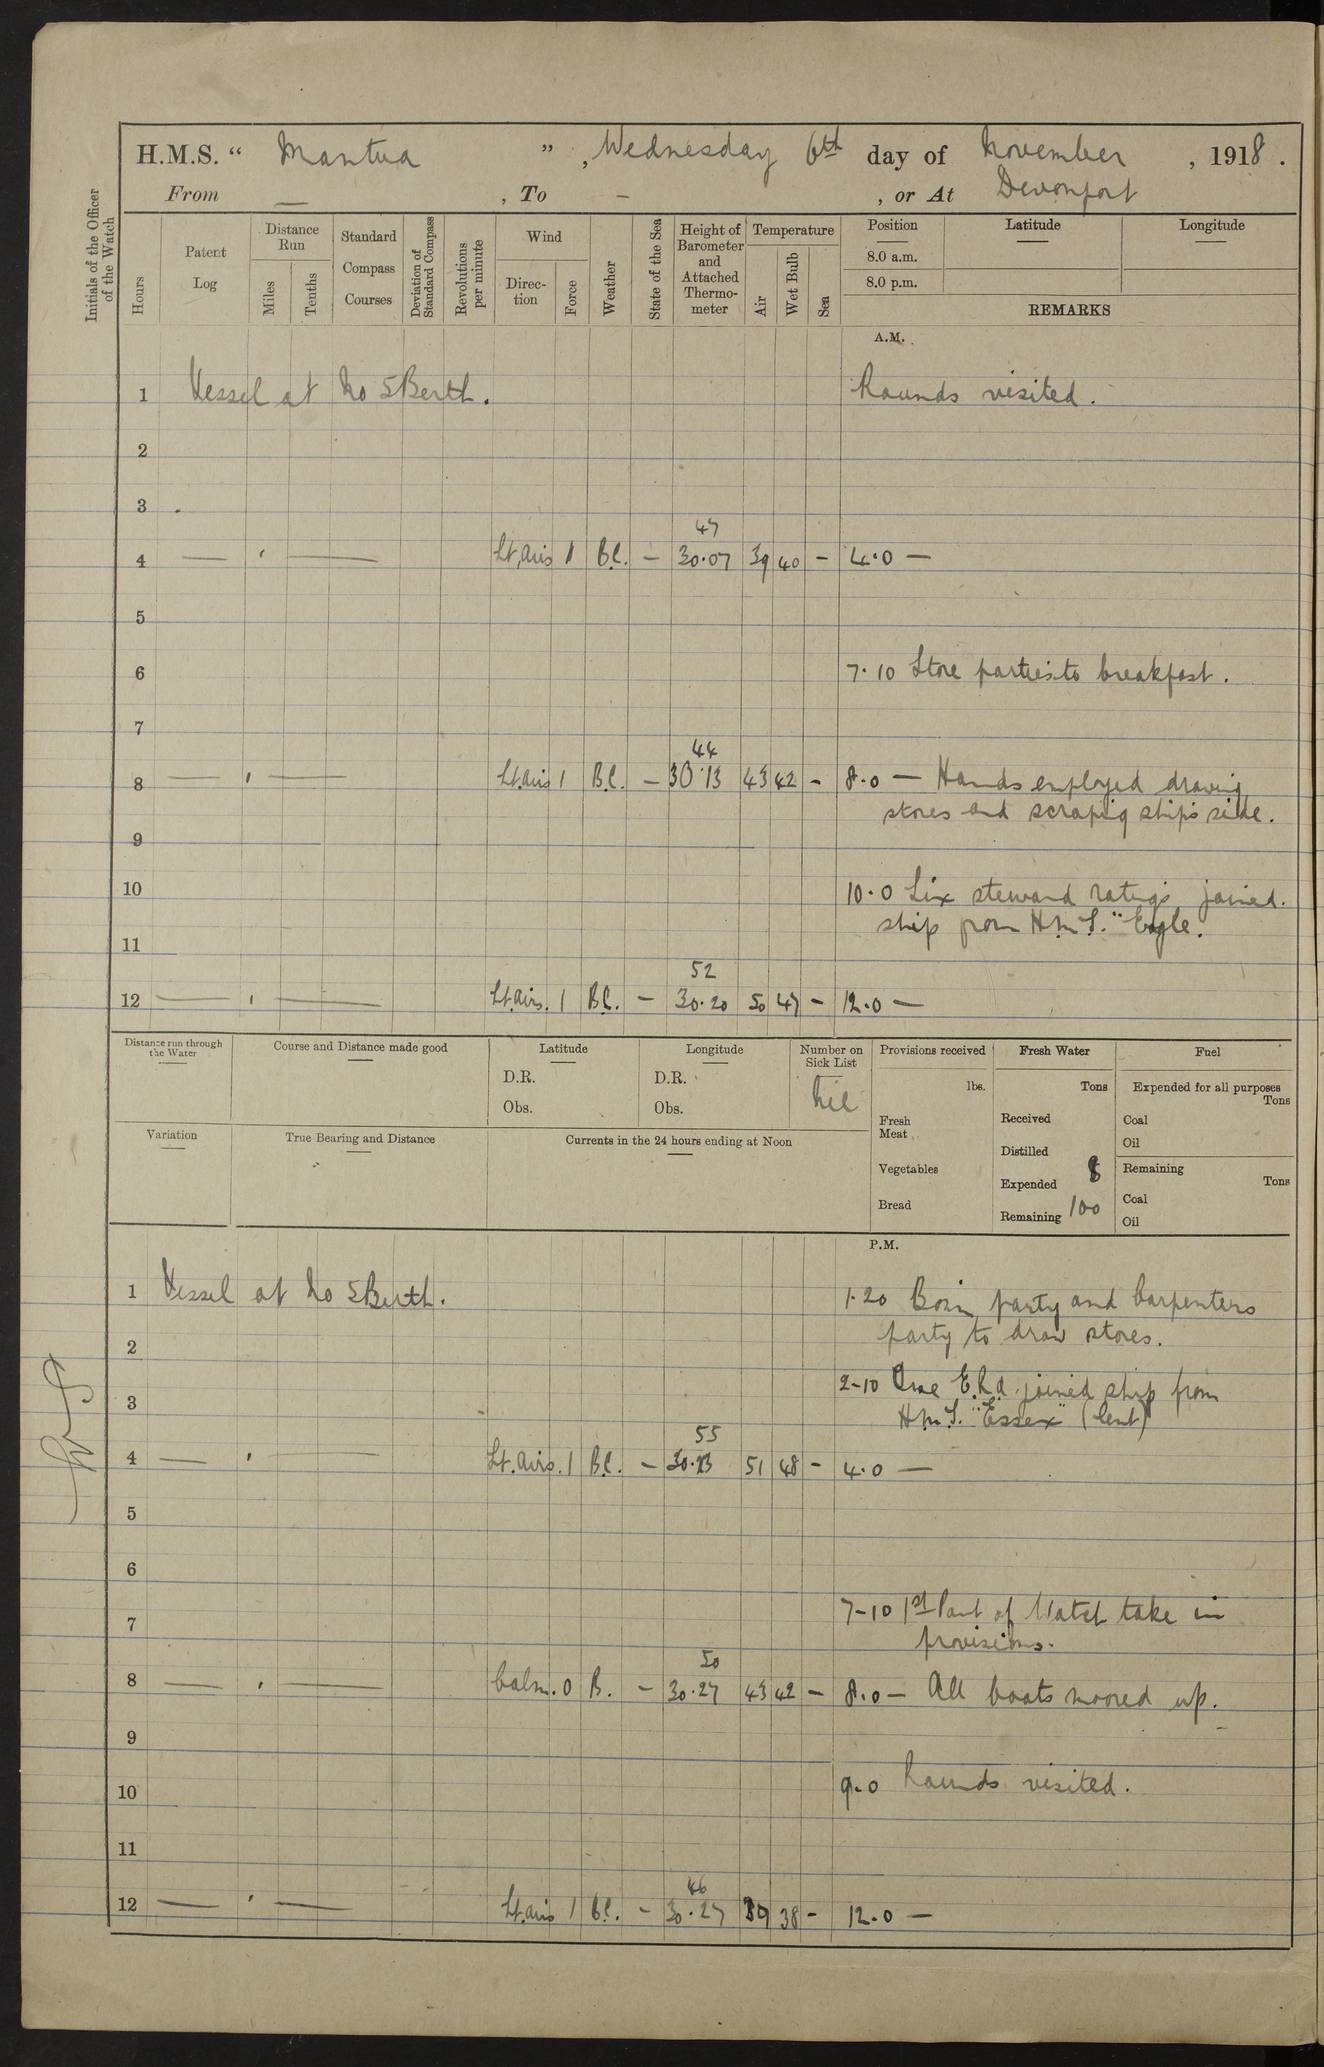 H.M.S. “ Mantua ”, Wednesday 6th day of November, 1918.
From — , To — , or At Devonport
Initials of the Officer of the Watch
Hours
Patent Log
Distance Run
Miles
Tenths
Standard Compass Courses
Deviation of Standard Compass
Revolutions per minute
Wind
Direction
Force
Weather
State of the Sea
Height of Barometer and Attached Thermometer
Temperature
Air
Wet Bulb
Sea
Position
Latitude
Longitude
8.0 a.m.
8.0 p.m.
REMARKS
A.M.
1 Vessel at No 5 Berth. Rounds visited.
2
3
47
4 — ' — Lt. airs 1 B.C. — 30.07 39 40 – 4.0 —
5
6 7.10 Store parties to breakfast.
7
44
8 — ' — Lt. airs 1 B.C. — 30.13 43 42 – 8.0 — Hands employed drawing
stores and scraping ship's side.
9
10 10.0 Six steward ratings joined
ship from H.M.S. "Eagle.
11
52
12 — ' — Lt. airs. 1 B.C. — 30.20 50 47 – 12.0 —
Distance run through the Water
Course and Distance made good
Latitude
D.R.
Obs.
Longitude
D.R.
Obs.
Number on Sick List
Nil
Provisions received
lbs.
Fresh Meat
Vegetables
Bread
Fresh Water
Tons
Received
Distilled
Expended 8
Remaining 100
Fuel
Expended for all purposes
Tons
Coal
Oil
Remaining
Tons
Coal
Oil
Variation
True Bearing and Distance
Currents in the 24 hours ending at Noon
P.M.
1 Vessel at No 5 Berth. 1.20 Bosn party and Carpenters
party to draw stores.
2
2-10 One E.R.A. joined ship from
3
H.M.S. "Essex" (lent)
55
4 — ' — Lt. airs. 1 B.C. — 30.23 51 48 – 4.0 —
5
6
7-10 1st Part of Watch take in
7
provisions.
50
8 — ' — Calm. 0 B. — 30.27 43 42 – 8.0 — All boats moored up.
9
9.0 Rounds visited.
10
11
46
12 — ' — Lt. airs 1 B.C. — 30.27 39 38 – 12.0 —